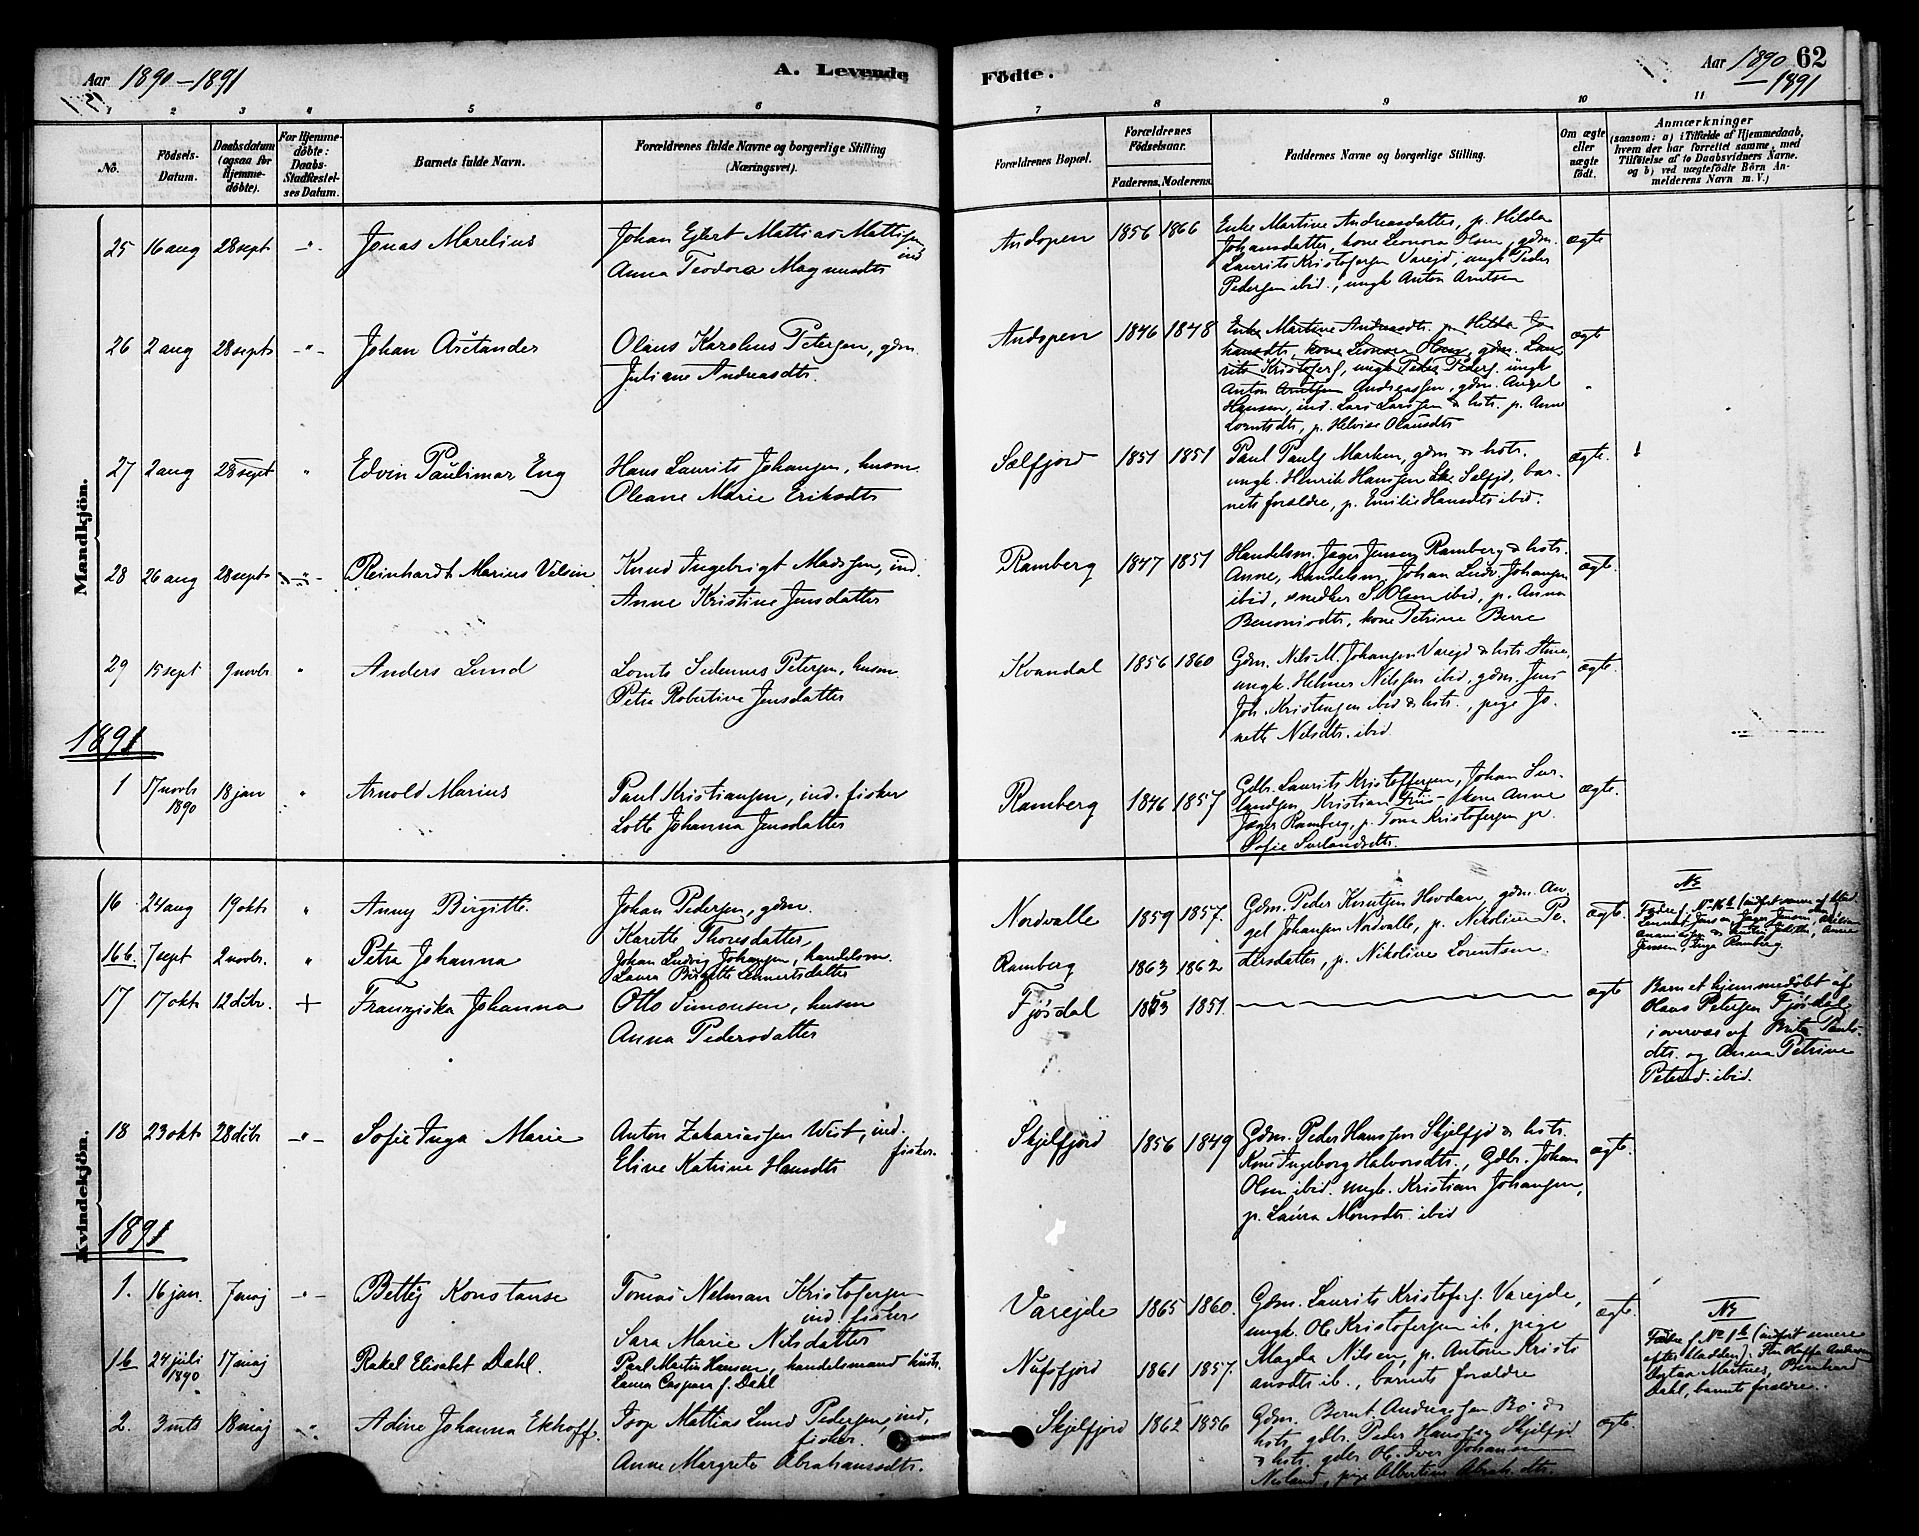 Aar 1890–1891
A. Levende
Födte.
Aar 1890 62
– 1891
1 2 3 4 5 6 7 8 9 10 11
No.
Födsels-
Datum.
Daabsdatum
(ogsaa for
Hjemme-
döbte).
For Hjemme-
döbte:
Daabs-
Stadfæstel-
ses Datum.
Barnets fulde Navn.
Forældrenes fulde Navne og borgerlige Stilling
(Næringsvei).
Forældrenes Bopæl.
Forældrenes
Födselsaar.
Faderens. Moderens.
Faddernes Navne og borgerlige Stilling.
Om ægte
eller
uægte
födt.
Anmærkninger
(saasom: a) i Tilfælde af Hjemmedaab,
hvem der har forrettet samme, med
Tilföielse af to Daabsvidners Navne.
og b) ved uægtefödte Börn An-
melderens Navn m. V.)
Mandkjön.
25 16 aug 28 sept -"- Jonas Marelius
Johan Ejlert Mattias Mattisen
ind
Anna Teodora Magnusdtr
Andopen 1856 1866
Enke Martine Andreasdatter, p. Hilda
Johansdatter, kone Leonora Olsen, gdm.
Laurits Kristofersen Varejd, ungk Peder
Pedersen ibid., ungk Anton Arntsen
ægte
26 2 aug 28 sept -"- Johan Astander
Olaus Karolius Petersen, gdm.
Juliane Andreasdtr.
Andopen 1846 1848
Enke Martine Andreasdtr. p. Hilda Jo
hansdtr, kone Leonora Olsen, gdm. Lau
rits Kristofers, ungk Peder Peders, ungk
Anton Arntsen Andreassen, gdm. Angel
Hansen, ind. Lars Larssen & hstr. p. Anne
Lorntsdtr, p. Helvise Olausdtr
ægte
27 2 aug 28 sept " Edvin Paulimar Eng
Hans Laurits Johansen, husm.
Oleane Marie Eriksdtr
Sælfjord 1851 1851
Paul Pauls Marken, gdm & hstr.
ungk. Henrik Hanssen Selfjd, bar-
nets forældre, p. Emilie Hansdtr ibid.
ægte.
28 26 aug 28 sept -"- Reinhardt Marius Velsin
Knud Ingebrigt Madssen, ind.
Anne Kristine Jensdatter
Ramberg 1847 1851
Handelsm. Jæger Jensen Ramberg & hstr.
Anne, handelsm. Johan Ludv. Johansen
ibid, snedker S. Olsen ibid, p. Anna
Benonisdtr, kone Petrine Berre
ægte.
29 15 sept 9 novbr " Anders Lund
Lornts Sedenius Petersen, husm.
Petra Robertine Jensdatter
Kvandal 1856 1860
Gdm. Nils M. Johansen Varejd & hstr Stine,
ungk. Helmer Nilssen ibid, gdm. Jens
Joh. Kristensen ibid & hstr., pige Jo
nette Nilsdtr. ibid
ægte.
1891
1 17 novbr
1890
18 jan " Arnold Marius
Paul Kristiansen, ind. fisker
Lotte Johanna Jensdatter
Ramberg 1846 1857
Gdbr. Laurits Kristoffersen, Johan Sur-
landsen, Kristian Friis – kone Anne
Jæger Ramberg, p. Tona Kristofersen p.
Sofie Surlandsdtr.
ægte.
Kvindekjön.
16 24 aug 19 okt " Anny Birgitte.
Johan Pedersen, gdm.
Karette Thomsdatter,
Nordvalle 1859 1857.
Gdm. Peder Knutsen Hovdan, gdm. An-
gel Johansen Nordvalle, p. Nikoline Pe-
dersdatter, p. Nikoline Lorentsen.
ægte.
16b. 7 sept 2 novbr. " Petra Johanna
Johan Ludvig Johansen, handelsm.
Laura Birgitte Lennertsdatter
Ramberg 1863 1862
NB
Fadre f. No 16b (indført senere af klad.
Lennert Jensen, Jæger Jensen
Jensen, Inga Ramberg
17 17 okt 12 decbr. + Franziska Johanna
Otto Simonsen, husm
Anna Pedersdatter
Fjørdal 1863 1851.
ægte
Barnet hjemmedøbt af
Olaus Petersen Fjørdal
i overvær af Brita Pauls-
dtr. og Anna Petrine
Petersd. ibid.
18 23 okt 28 decbr -"- Sofie Inga Marie
Anton Zakariassen Wist, ind.
fisker.
Eline Katrine Hansdtr
Skjelfjord 1856 1849
Gdm. Peder Hanssen Skjelfjd & hstr.
Kone Ingeborg Halvorsdtr., Gdbr. Johan
Olsen ibid. ungk. Kristian Johansen,
p. Laura Monsdtr. ibid
ægte.
1891
1. 16 jan. 7 maj -"- Betty Konstanse
Tomas Nelman Kristofersen
ind. fisker
Sara Marie Nilsdatter
Varejde 1865 1860.
Gdm. Laurits Kristofers. Varejde,
ungk. Ole Kristofersen ib. pige
Magda Nilsen, p. Antone Kristi
ansdtr ib., barnets forældre
ægte.
1b 24 juli
1890
17 maj Rakel Elisabet Dahl.
Paul Martin Hansen, handelsmand hustr.
Laura Caspara f. Dahl
Nufsfjord 1861 1857.
NB
Fadre f No 1b (indført senere
efter kladden):
Dahl, barnets forældre.
2. 3 mts 18 maj " Adine Johanna Ekhoff.
Joop Mattias Lund Pedersen, ind.
fisker.
Anne Margrete Abrahamsdtr.
Skjelfjord 1862 1856
Gdm. Bernt Andreassen Bø &
hstr. gdbr. Peder Hanssen Skjelfjd
& hstr. gdbr Ole Iver Johansen
Nesland, pige Albertine Abrah.dtr.
ægte.